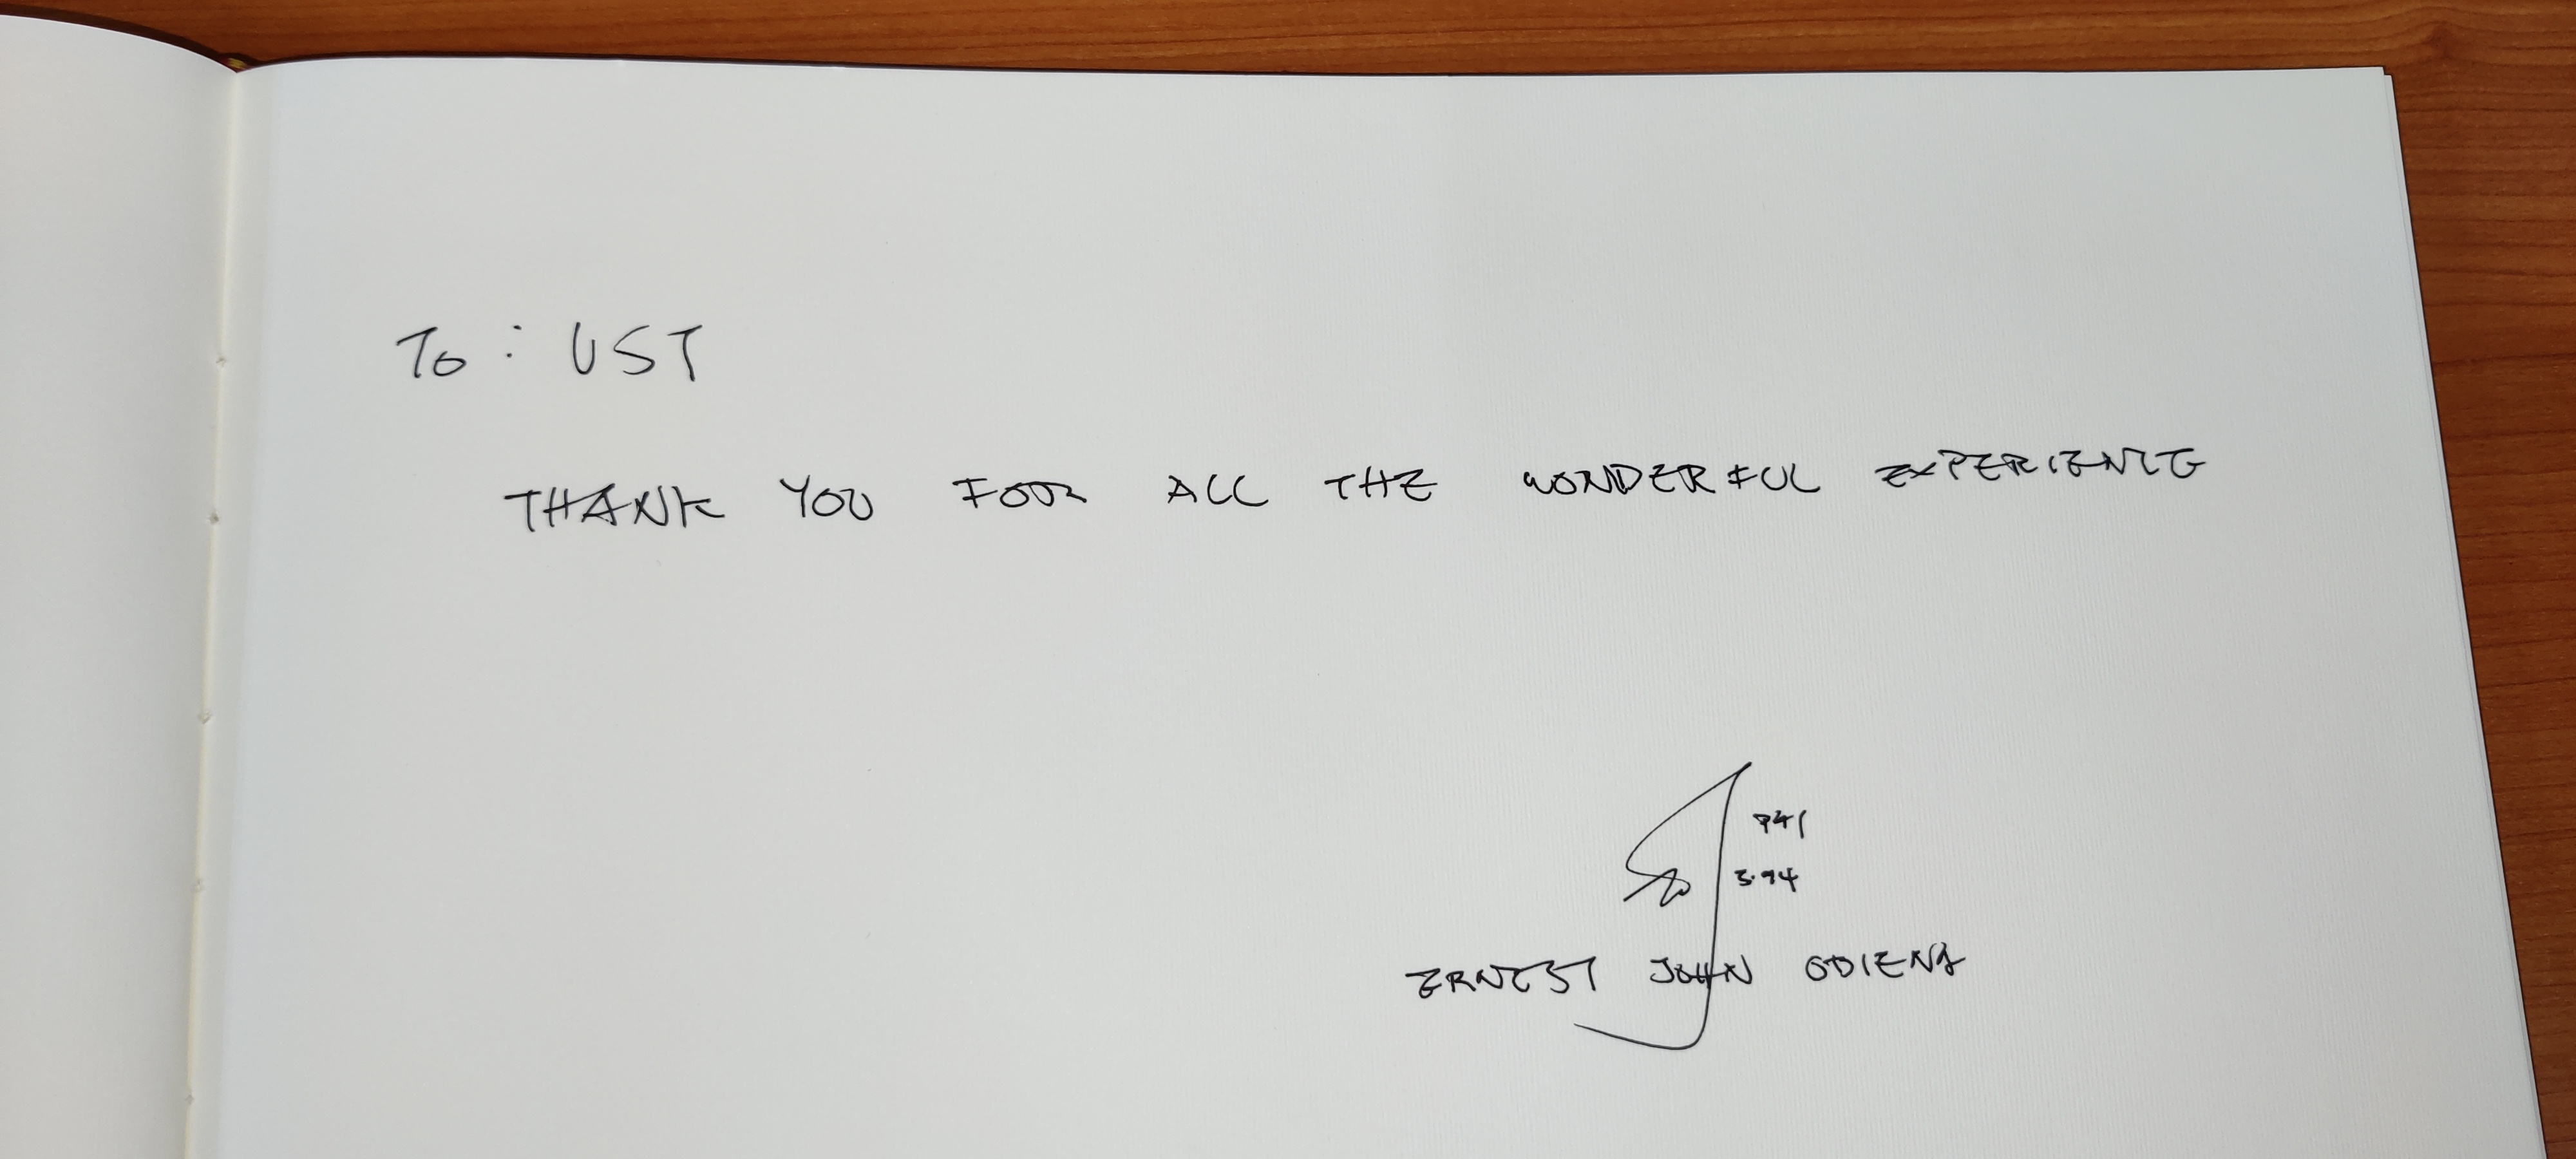 To : UST
THANK YOU FOOR ALL THE WONDERFUL EXPERIENCE
941
5.94
ERNEST JOHN OBIENA